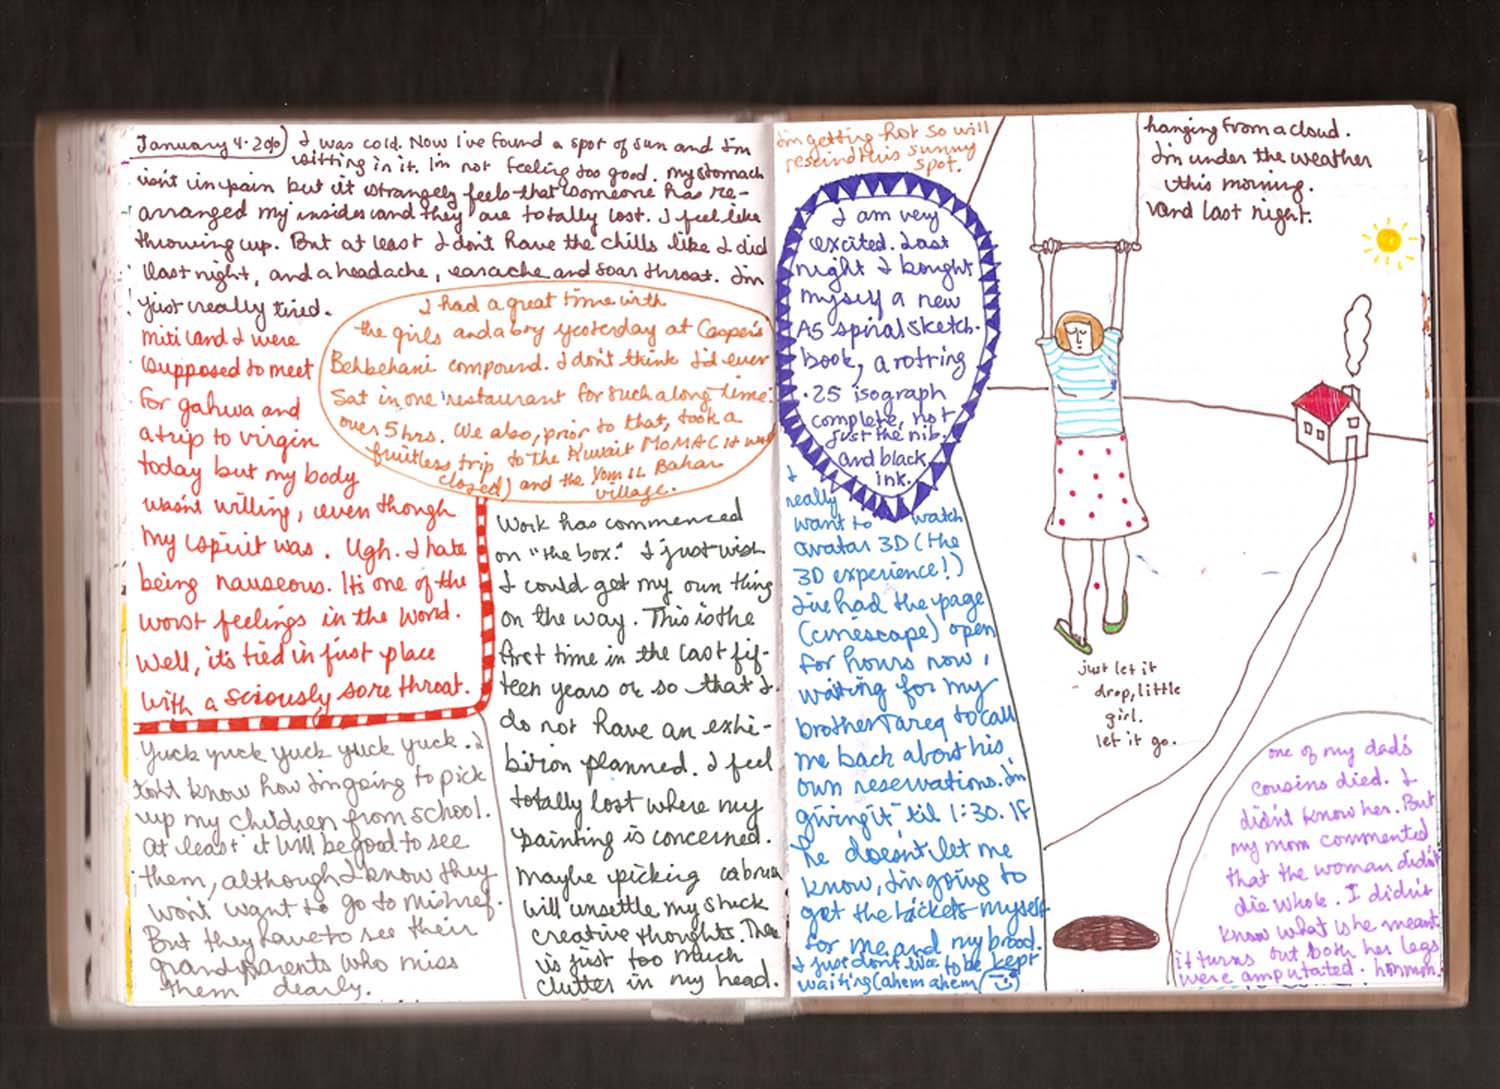 January 4. 2010 I was cold. Now I've found a spot of sun and I'm
sitting in it. I'm not feeling too good. my stomach
isn't in pain but it strangely feels that someone has re-
arranged my insides and they are totally lost. I feel like
throwing up. But at least I don't have the chills like I did
last night, and a headache, earache and soar throat. I'm
just really tired.
miti and I were
supposed to meet
for gahwa and
a trip to virgin
today but my body
wasn't willing, even though
my spirit was. Ugh. I hate
being nauseous. It's one of the
worst feelings in the world.
Well, it's tied in first place
with a seriously sore throat.
I had a great time with
the girls and a boy yesterday at Casper's
Behbehani compound. I don't think I'd ever
sat in one restaurant for such a long time:
over 5 hrs. We also, prior to that, took a
fruitless trip to the Kuwait MOMAC it was
closed) and the Yom il Bahar
village.
Yuck yuck yuck yuck yuck. I
don't know how I'm going to pick
up my children from school.
at least it will be good to see
them, although I know they
won't want to go to mishref.
But they have to see their
grandparents who miss
them dearly.
Work has commenced
on "the box." I just wish
I could get my own thing
on the way. This is the
first time in the last fif-
teen years or so that I
do not have an exhi-
bition planned. I feel
totally lost where my
painting is concerned.
maybe picking cabrua
will unsettle my stuck
creative thoughts. There
is just too much
clutter in my head.
I'm getting hot so will
rescind this sunny
spot.
I am very
excited. Last
night I bought
myself a new
A5 spiral sketch-
book, a rotring
.25 isograph
complete, not
just the nib.
and black
ink.
I
really
want to watch
avatar 3D (the
3D experience!)
I've had the page
(cinescape) open
for hours now,
waiting for my
brother Tareq to call
me back about his
own reservations. I'm
giving it 'til 1:30. If
he doesn't let me
know, I'm going to
get the tickets myself
for me and my brood.
I just don't like to be kept
waiting (ahem ahem
hanging from a cloud.
I'm under the weather
this morning.
and last night.
just let it
drop, little
girl.
let it go.
one of my dad's
cousins died. I
didn't know her. But
my mom commented
that the woman didn't
die whole. I didn't
know what she meant.
it turns out both her legs
were amputated. hmmmh.